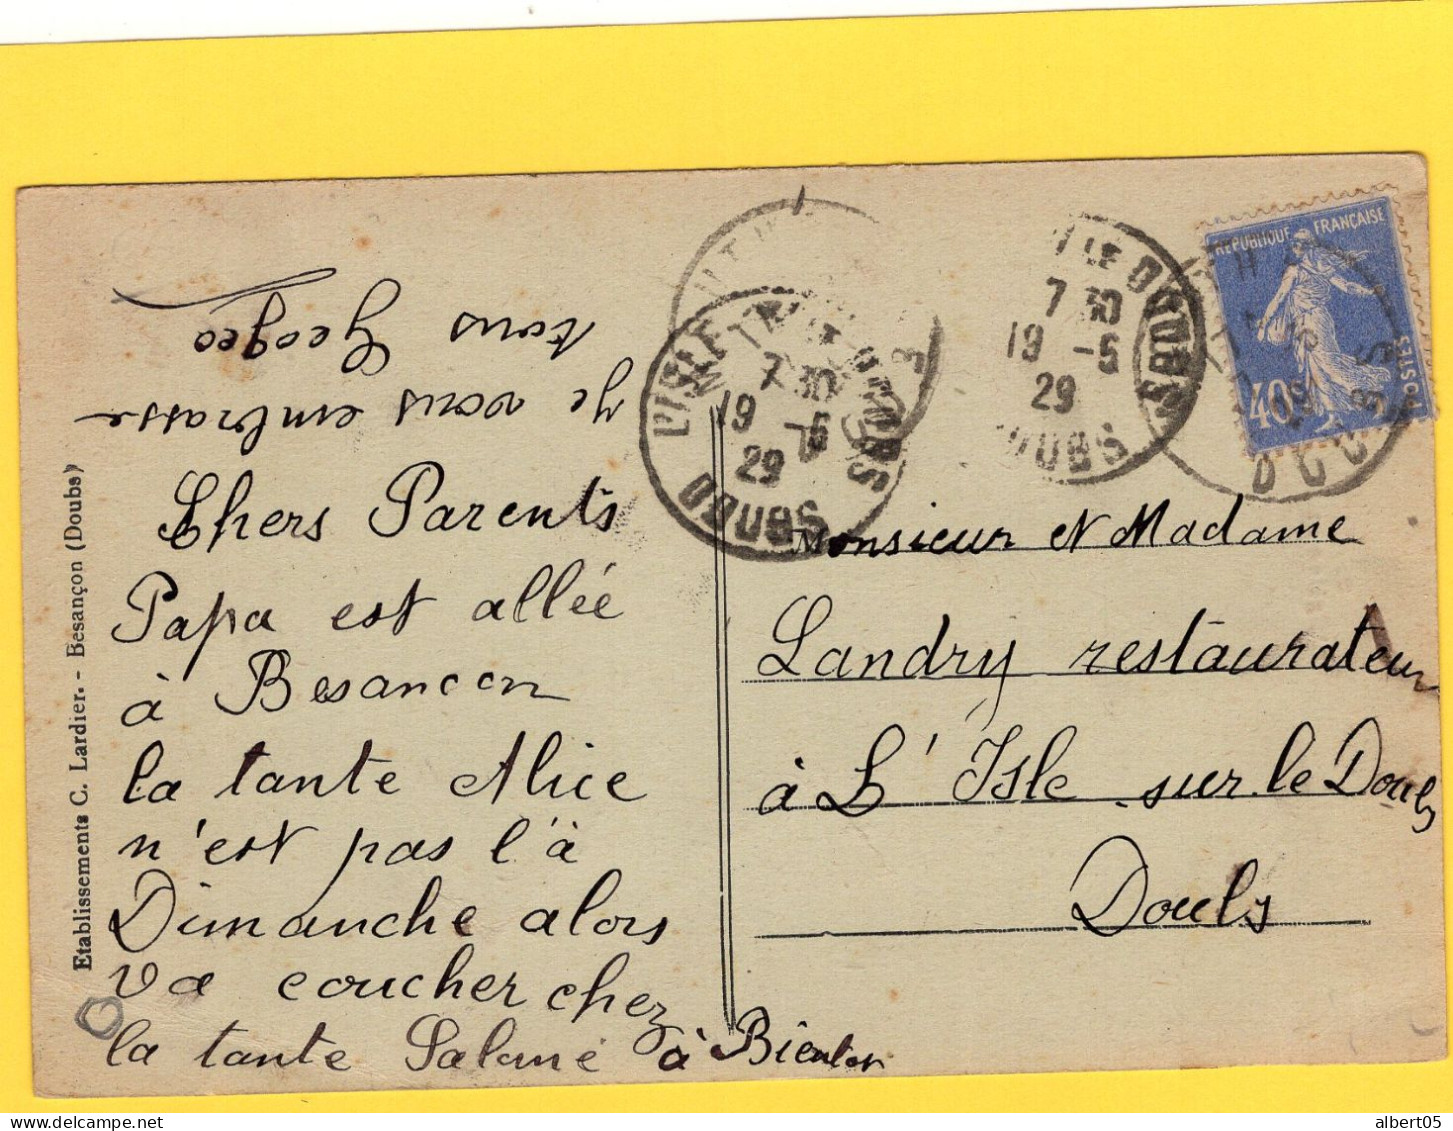 Chers Parents
Papa est allée
à Besancon
la tante Alice
n'est pas l'à
Dimanche alors
va coucher chez
la tante Salomé à
je vous embrasse
tous Geogeo
Monsieur et Madame
Landry restaurateur
à L'Isle sur le Doubs
Doubs
Etablissements C. Lardier. - Besançon (Doubs)
REPUBLIQUE FRANÇAISE
POSTES
40c
LE DOUBS
7 30
19 -5
29
DOUBS
L'ISLE
7 30
19 -5
29
DOUBS
Delcampe.net
albert05